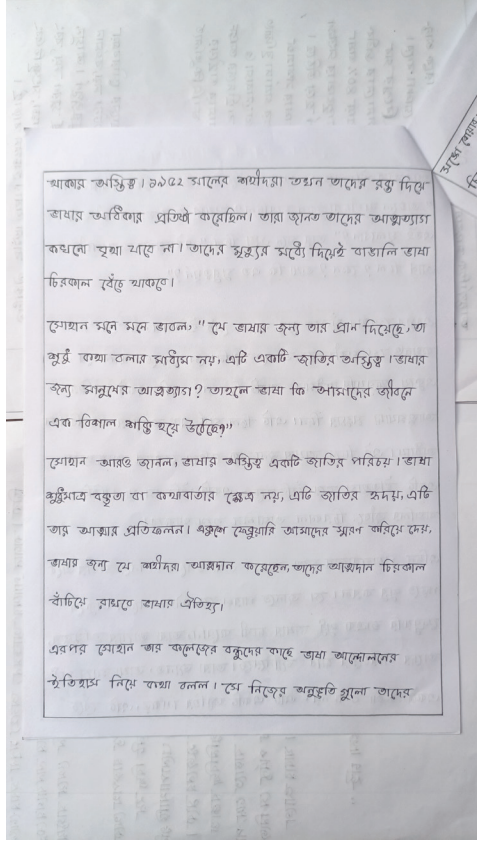 থাকার অস্তিত্ব। ১৯৫২ সালের শহীদরা তখন তাদের রক্ত দিয়ে
ভাষার অধিকার প্রতিষ্ঠা করেছিল। তারা জানত তাদের আত্মত্যাগ
কখনো বৃথা যাবে না। তাদের মৃত্যুর মধ্যে দিয়েই বাঙালি ভাষা
চিরকাল বেঁচে থাকবে।
সোহান মনে মনে ভাবল, "যে ভাষার জন্য তার প্রান দিয়েছে, তা
শুধু কথা বলার মাধ্যম নয়, এটি একটি জাতির অস্তিত্ব। ভাষার
জন্য মানুষের আত্মত্যাগ? তাহলে ভাষা কি আমাদের জীবনে
এক বিশাল শক্তি হয়ে উঠেছে?"
সোহান আরও জানল, ভাষার অস্তিত্ব একটি জাতির পরিচয়। ভাষা
শুধুমাত্র বক্তৃতা বা কথাবার্তার ক্ষেত্র নয়, এটি জাতির হৃদয়, এটি
তার আত্মার প্রতিফলন। একুশে ফেব্রুয়ারি আমাদের স্মরণ করিয়ে দেয়,
ভাষার জন্য যে শহীদরা আত্মদান করেছেন, তাদের আত্মদান চিরকাল
বাঁচিয়ে রাখবে ভাষার ঐতিহ্য।
এরপর সোহান তার কলেজের বন্ধুদের কাছে ভাষা আন্দোলনের
ইতিহাস নিয়ে কথা বলল। সে নিজের অনুভূতি গুলো তাদের